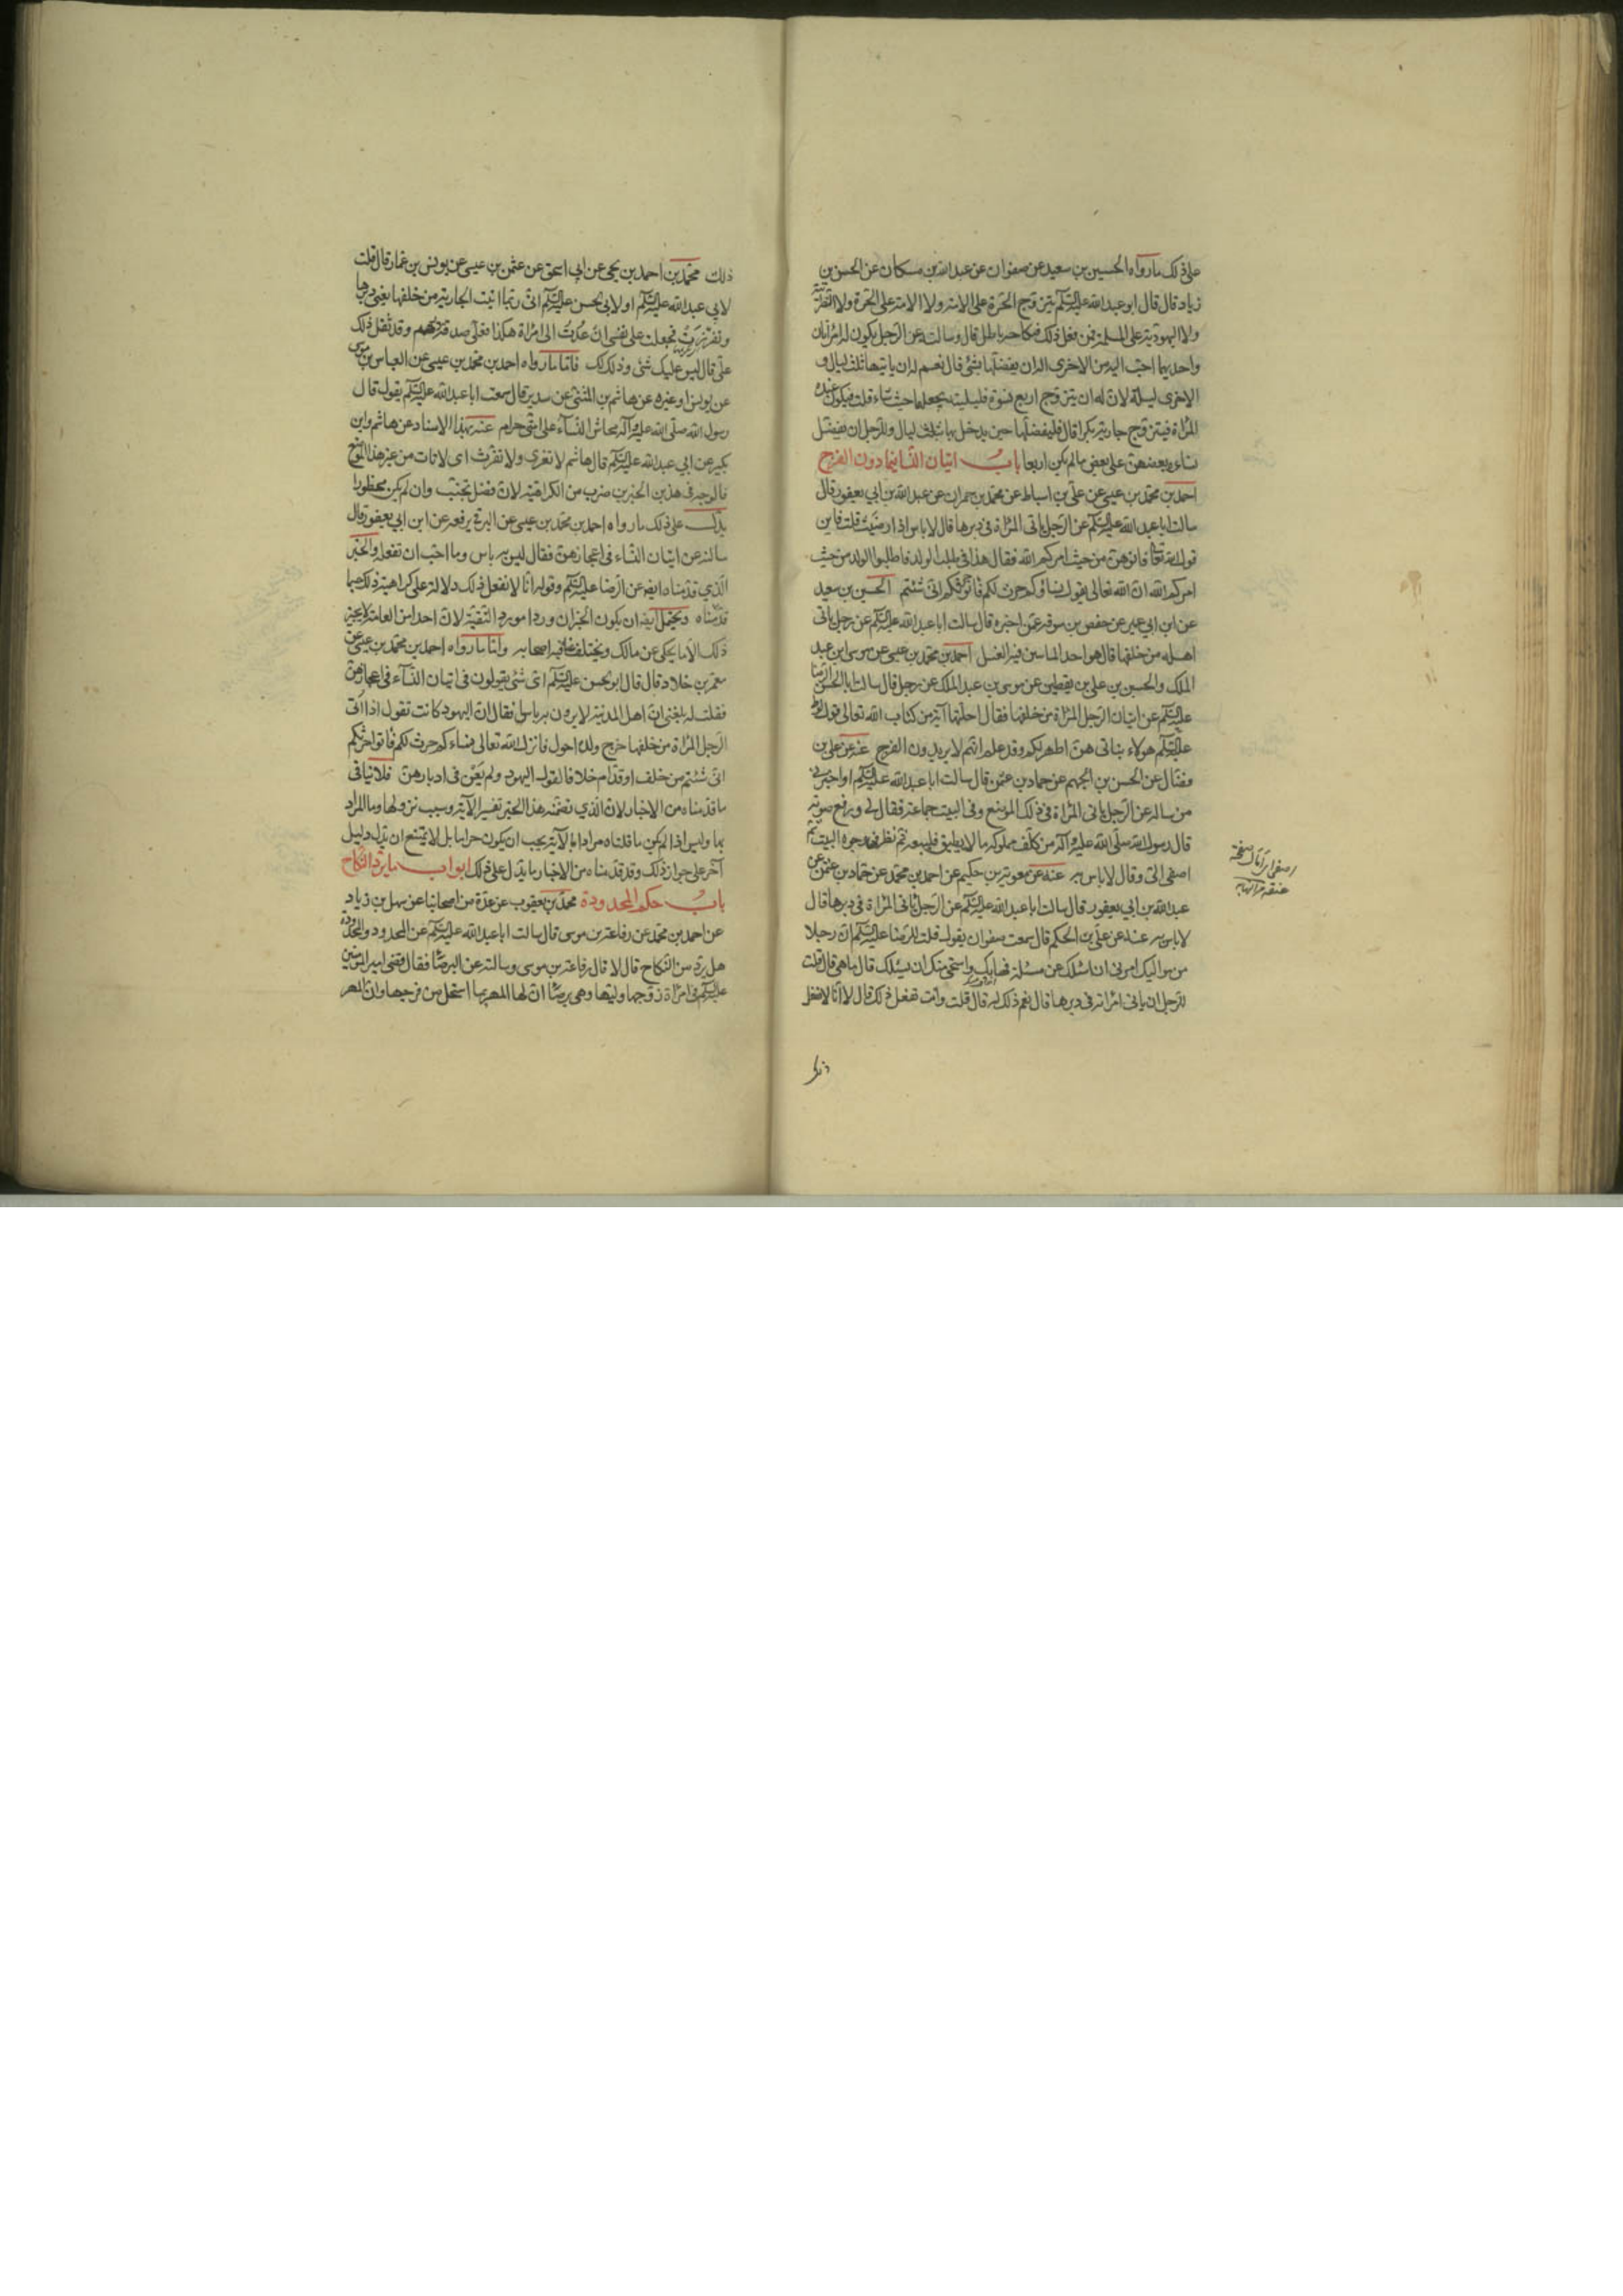 على ذلك ما رواه الحسين بن سعيد عن صفوان عن عبدالله بن مسكان عن الحسن بن
زياد قال قال ابو عبدالله عليه السلم يتزوج الحرة على الامة ولا الامة على الحرة ولا النصرانية
ولا اليهودية على المسلمة فمن فعل ذلك فنكاحه باطل قال وسالته عن الرجل يكون له المرأتان
واحديهما احب اليه من الاخرى اله ان يفضلها بشئ قال نعم له ان ياتيها ثلث ليال و
الاخرى ليلة لان له ان يتزوج اربع نسوة فليلتيه يجعلهما حيث شاء قلت فيكون عنده
المرأة فيتزوج جارية بكرا قال فليفضلها حين يدخل بها بثلث ليال وللرجل ان يفضل
نساءه بعضهن على بعض ما لم يكن اربعا باب اتيان النساء فيما دون الفرج
احمد بن محمد بن عيسى عن علي بن اسباط عن محمد بن حمران عن عبدالله بن ابي يعفور قال
سالت ابا عبدالله عليه السلم عن الرجل ياتى المرأة فى دبرها قال لا باس اذا رضيت قلت فاين
قول الله تعالى فاتوهن من حيث امركم الله فقال هذا فى طلب الولد فاطلبوا الولد من حيث
امركم الله ان الله تعالى يقول نساؤكم حرث لكم فاتوا حرثكم انى شئتم الحسين بن سعيد
عن ابن ابي عمير عن حفص بن سوقة عمن اخبره قال سالت ابا عبدالله عليه السلم عن رجل ياتى
اهله من خلفها قال هو احد الماتيين فيه الغسل احمد بن محمد بن عيسى عن موسى ابن عبد
الملك والحسين بن علي بن يقطين عن موسى بن عبد الملك عن رجل قال سالت ابا الحسن الرضا
عليه السلم عن اتيان الرجل المرأة من خلفها فقال احلتها آية من كتاب الله تعالى قول لوط
عليه السلم هولاء بناتى هن اطهر لكم وقد علم انهم لا يريدون الفرج عنه عن علي بن
فضال عن الحسن بن الجهم عن حماد بن عثمن قال سالت ابا عبدالله عليه السلم او اخبرنى
من ساله عن الرجل ياتى المرأة فى ذلك الموضع وفى البيت جماعة فقال لي ورفع صوته
قال رسول الله صلى الله عليه وآله من كلف مملوكه ما لا يطيق فليبعه ثم نظر فى وجوه البيت ثم
اصغى الي وقال لا باس به عنه عن معوية بن حكيم عن احمد بن محمد عن حماد بن عثمن عن
عبدالله بن ابي يعفور قال سالت ابا عبدالله عليه السلم عن الرجل ياتى المرأة فى دبرها قال
لا باس به عنه عن علي بن الحكم قال سمعت صفوان يقول قلت للرضا عليه السلم ان رجلا
من مواليك امرنى ان اسئلك عن مسئلة فهابك واستحى منك ان يسئلك قال ما هى قال قلت
للرجل ان ياتى امراته فى دبرها قال نعم ذلك له قال قلت وانت تفعل ذلك قال لا انا لا نفعل
ذلك
ذلك محمد بن احمد بن يحيى عن ابي اسحق عن عثمن بن عيسى عن يونس بن عمار قال قلت
لابي عبدالله عليه السلم او لابي الحسن عليه السلم انى ربما اتيت الجارية من خلفها يعنى دبرها
ونفرت فجعلت على نفسى ان عدت الى امرأة هكذا فعلي صدقة درهم وقد ثقل ذلك
علي قال ليس عليك شئ وذلك لك فاما ما رواه احمد بن محمد بن عيسى عن العباس بن موسى
عن يونس او غيره عن هاشم بن المثنى عن سدير قال سمعت ابا عبدالله عليه السلم يقول قال
رسول الله صلى الله عليه وآله محاش النساء على امتى حرام عنه بهذا الاسناد عن هاشم وابن
بكير عن ابي عبدالله عليه السلم قال هاشم لا تفرى ولا تفرث اى لا تات من غير هذا الموضع
فالوجه فى هذين الخبرين ضرب من الكراهية لان الفضل تجنب وان لم يكن محظورا
يدل على ذلك ما رواه احمد بن محمد بن عيسى عن البرقي يرفعه عن ابن ابي يعفور قال
سالته عن اتيان النساء فى اعجازهن فقال ليس به باس وما احب ان تفعله والخبر
الذي قدمناه ايضه عن الرضا عليه السلم وقوله انا لا نفعل ذلك دلالة على كراهية ذلك حسبما
قدمناه ويحتمل ايضه ان يكون الخبران وردا مورد التقية لان احدا من العامة لا يجيز
ذلك الا ما يحكى عن مالك ويختلف عنه فيه اصحابه واما ما رواه احمد بن محمد بن عيسى عن
معمر بن خلاد قال قال ابو الحسن عليه السلم اى شئ يقولون فى اتيان النساء فى اعجازهن
فقلت له بلغنى ان اهل المدينة لا يرون به باسا فقال ان اليهود كانت تقول اذا اتى
الرجل المرأة من خلفها خرج ولده احول فانزل الله تعالى نساءكم حرث لكم فاتوا حرثكم
انى شئتم من خلف او قدام خلافا لقول اليهود ولم يعن فى ادبارهن فلا ينافى
ما قدمناه من الاخبار لان الذي تضمنه هذا الخبر تفسير الآية وسبب نزولها وما المراد
بها وليس اذا لم يكن ما قلناه مرادا بالآية يجب ان يكون حراما بل لا يمتنع ان يدل دليل
آخر على جواز ذلك وقد قدمناه من الاخبار ما يدل على ذلك ابواب ما يرد النكاح
باب حكم المحدودة محمد بن يعقوب عن عدة من اصحابنا عن سهل بن زياد
عن احمد بن محمد عن رفاعة بن موسى قال سالت ابا عبدالله عليه السلم عن المحدود والمحدودة
هل يرد من النكاح قال لا قال رفاعة بن موسى وسالته عن البرصاء فقال قضى امير المؤمنين
عليه السلم فى امرأة زوجها وليها وهى برصاء ان لها المهر بما استحل من فرجها وان المهر